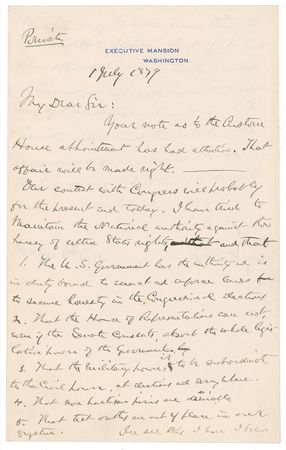 Private
EXECUTIVE MANSION
WASHINGTON.
1 July 1879
My Dear Sir:
Your note as to the Custom
House appointment has had attention. That
affair will be made right.
Our contest with Congress will probably
for the present end today. I have tried to
maintain the National authority against the
heresy of ultra State rights and that
1. The U.S. Government has the authority and is
in duty bound to enact and enforce laws
to secure honesty in the Congressional Elections
2. That the House of Representatives can not,
even if the Senate consents, absorb the whole legis-
lative power of the Government
3 That the Military power is to be subordinate
to the Civil power, at elections and every where.
4. That non partisan juries are desirable
5. That test oaths are out of place in our
system.
In all this I have I believe